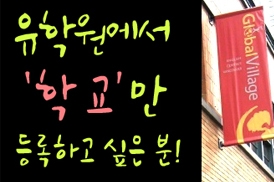 유학원에서
'학교'만
등록하고 싶은 분!
Global Village